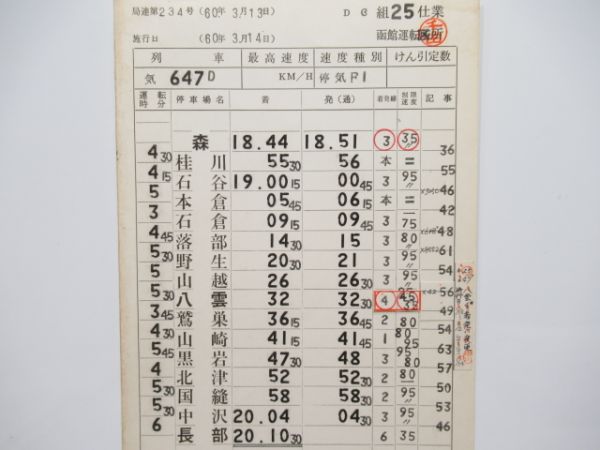 局達第234号 (60年 3月13日) D C 組25仕業
施行日 (60年 3月14日) 函館運転所
列 車 最高速度 速度種別 けん引定数
気 647D KM/H 停気F1
運転時分 停車場名 着 発(通) 着発線 制限速度 記事
森 18.44 18.51 3 35
4 30 桂川 55 30 56 本 = 36
4 15 石谷 19.00 15 00 45 3 95 55
5 本倉 05 45 06 15 本 = 46
3 石倉 09 15 09 45 3 75 42
4 45 落部 14 30 15 3 80 48
5 30 野生 20 30 21 3 95 61
5 山越 26 26 30 3 95 54
5 30 八雲 32 32 30 4 45 56
3 45 鷲巣 36 15 36 45 2 80 49
4 30 山崎 41 15 41 45 1 80 95 50
5 30 黒岩 47 30 48 3 95 80 51
4 30 北津 52 52 30 2 80 40
5 30 国縫 58 58 30 2 95 50
5 30 中沢 20.04 04 30 3 95 53
6 長部 20.10 30 6 35 46